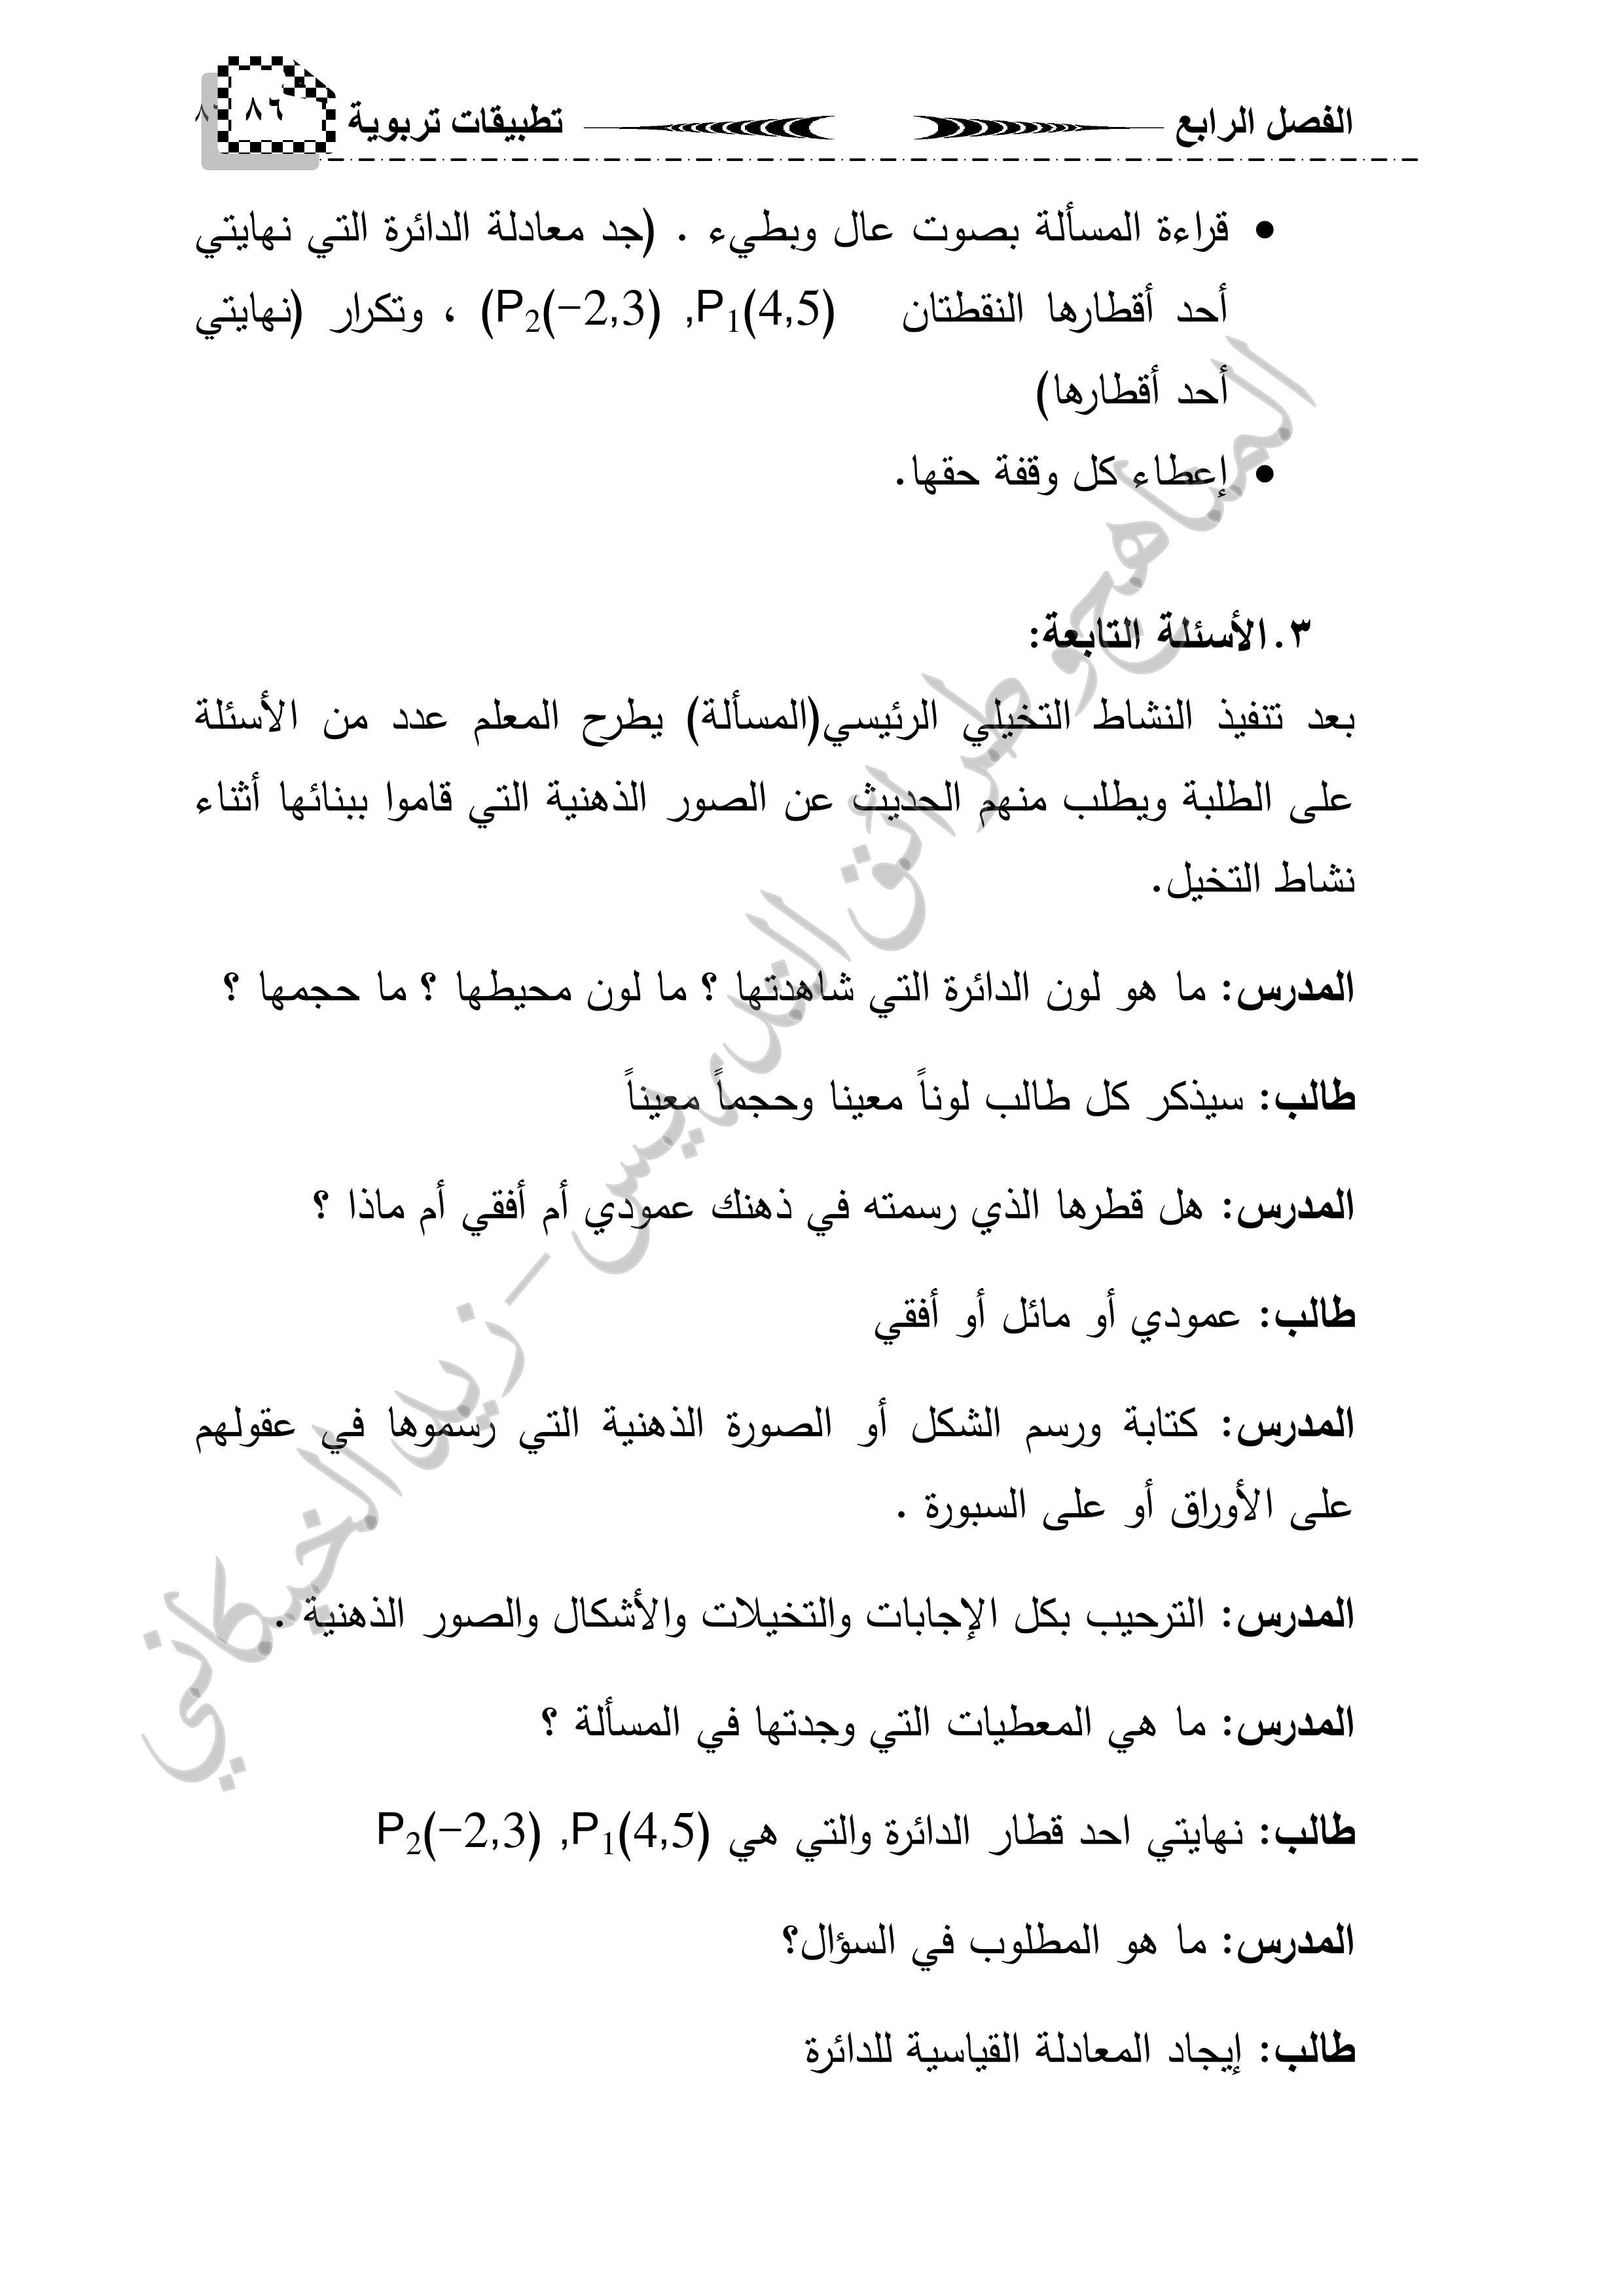 الفصل الرابع تطبيقات تربوية ٨٦
• قراءة المسألة بصوت عال وبطيء . (جد معادلة الدائرة التي نهايتي
أحد أقطارها النقطتان P2(−2,3) ,P1(4,5)) ، وتكرار (نهايتي
أحد أقطارها)
• إعطاء كل وقفة حقها.
٣.الأسئلة التابعة:
بعد تنفيذ النشاط التخيلي الرئيسي(المسألة) يطرح المعلم عدد من الأسئلة
على الطلبة ويطلب منهم الحديث عن الصور الذهنية التي قاموا ببنائها أثناء
نشاط التخيل.
المدرس: ما هو لون الدائرة التي شاهدتها ؟ ما لون محيطها ؟ ما حجمها ؟
طالب: سيذكر كل طالب لوناً معينا وحجماً معيناً
المدرس: هل قطرها الذي رسمته في ذهنك عمودي أم أفقي أم ماذا ؟
طالب: عمودي أو مائل أو أفقي
المدرس: كتابة ورسم الشكل أو الصورة الذهنية التي رسموها في عقولهم
على الأوراق أو على السبورة .
المدرس: الترحيب بكل الإجابات والتخيلات والأشكال والصور الذهنية .
المدرس: ما هي المعطيات التي وجدتها في المسألة ؟
طالب: نهايتي احد قطار الدائرة والتي هي P2(−2,3) ,P1(4,5)
المدرس: ما هو المطلوب في السؤال؟
طالب: إيجاد المعادلة القياسية للدائرة
المناهج وطرائق التدريس - زيد الخيكاني